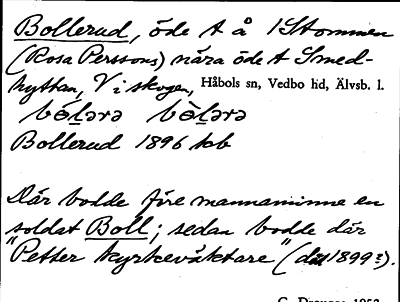 Bollerud, öde t å 1 Stommen
(Rosa Perssons) nära öde t Smed-
hyttan, V i skogen, Håbols sn, Vedbo hd, Älvsb. l.
Bollerud 1896 kb
Där bodde före mannaminne en
soldat Boll; sedan bodde där
"Petter kyrkeväktare" (död 1899?).